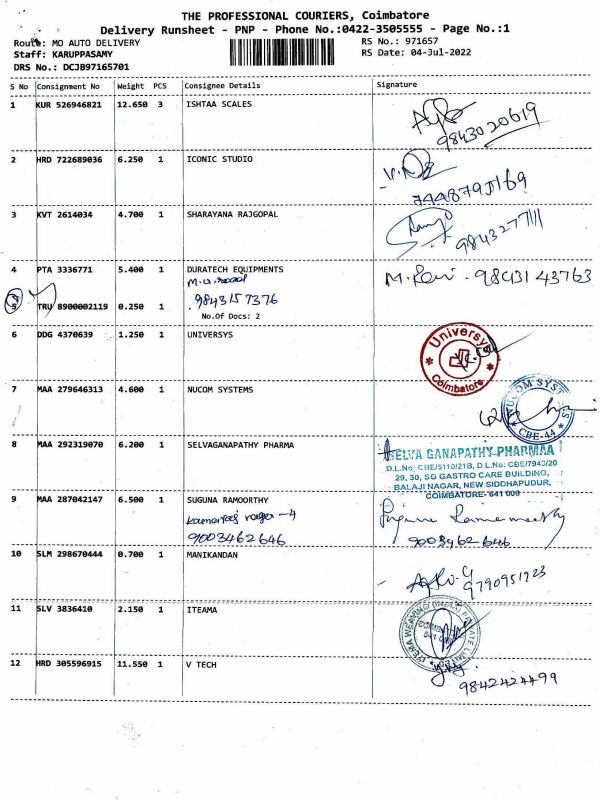 THE PROFESSIONAL COURIERS, Coimbatore
Delivery Runsheet - PNP - Phone No.:0422-3505555 - Page No.:1
Route: MO AUTO DELIVERY
RS No.: 971657
Staff: KARUPPASAMY
RS Date: 04-Jul-2022
DRS No.: DCJB97165701
S No Consignment No Weight PCS Consignee Details Signature
1 KUR 526946821 12.650 3 ISHTAA SCALES
9843020619
2 HRD 722689036 6.250 1 ICONIC STUDIO
3 KVT 2614034 4.700 1 SHARAYANA RAJGOPAL
9843277111
4 PTA 3336771 5.400 1 DURATECH EQUIPMENTS
M. Ravi - 9843143763
9843157376
5 TRU 8900002119 0.250 1
No.Of Docs: 2
6 DDG 4370639 1.250 1 UNIVERSYS
Universys
Coimbatore
7 MAA 279646313 4.600 1 NUCOM SYSTEMS
NUCOM SYSTEMS
CBE-44
8 MAA 292319070 6.200 1 SELVAGANAPATHY PHARMA
SELVA GANAPATHY PHARMAA
D.L.No: CBE/5110/21B, D.L.No: CBE/7940/20
29, 30, SG GASTRO CARE BUILDING,
BALAJI NAGAR, NEW SIDDHAPUDUR,
COIMBATORE- 641 000
9 MAA 287042147 6.500 1 SUGUNA RAMOORTHY
9003462646
9003462646
10 SLM 298670444 0.700 1 MANIKANDAN
9790951723
11 SLV 3836410 2.150 1 ITEAMA
12 HRD 305596915 11.550 1 V TECH
9842424499